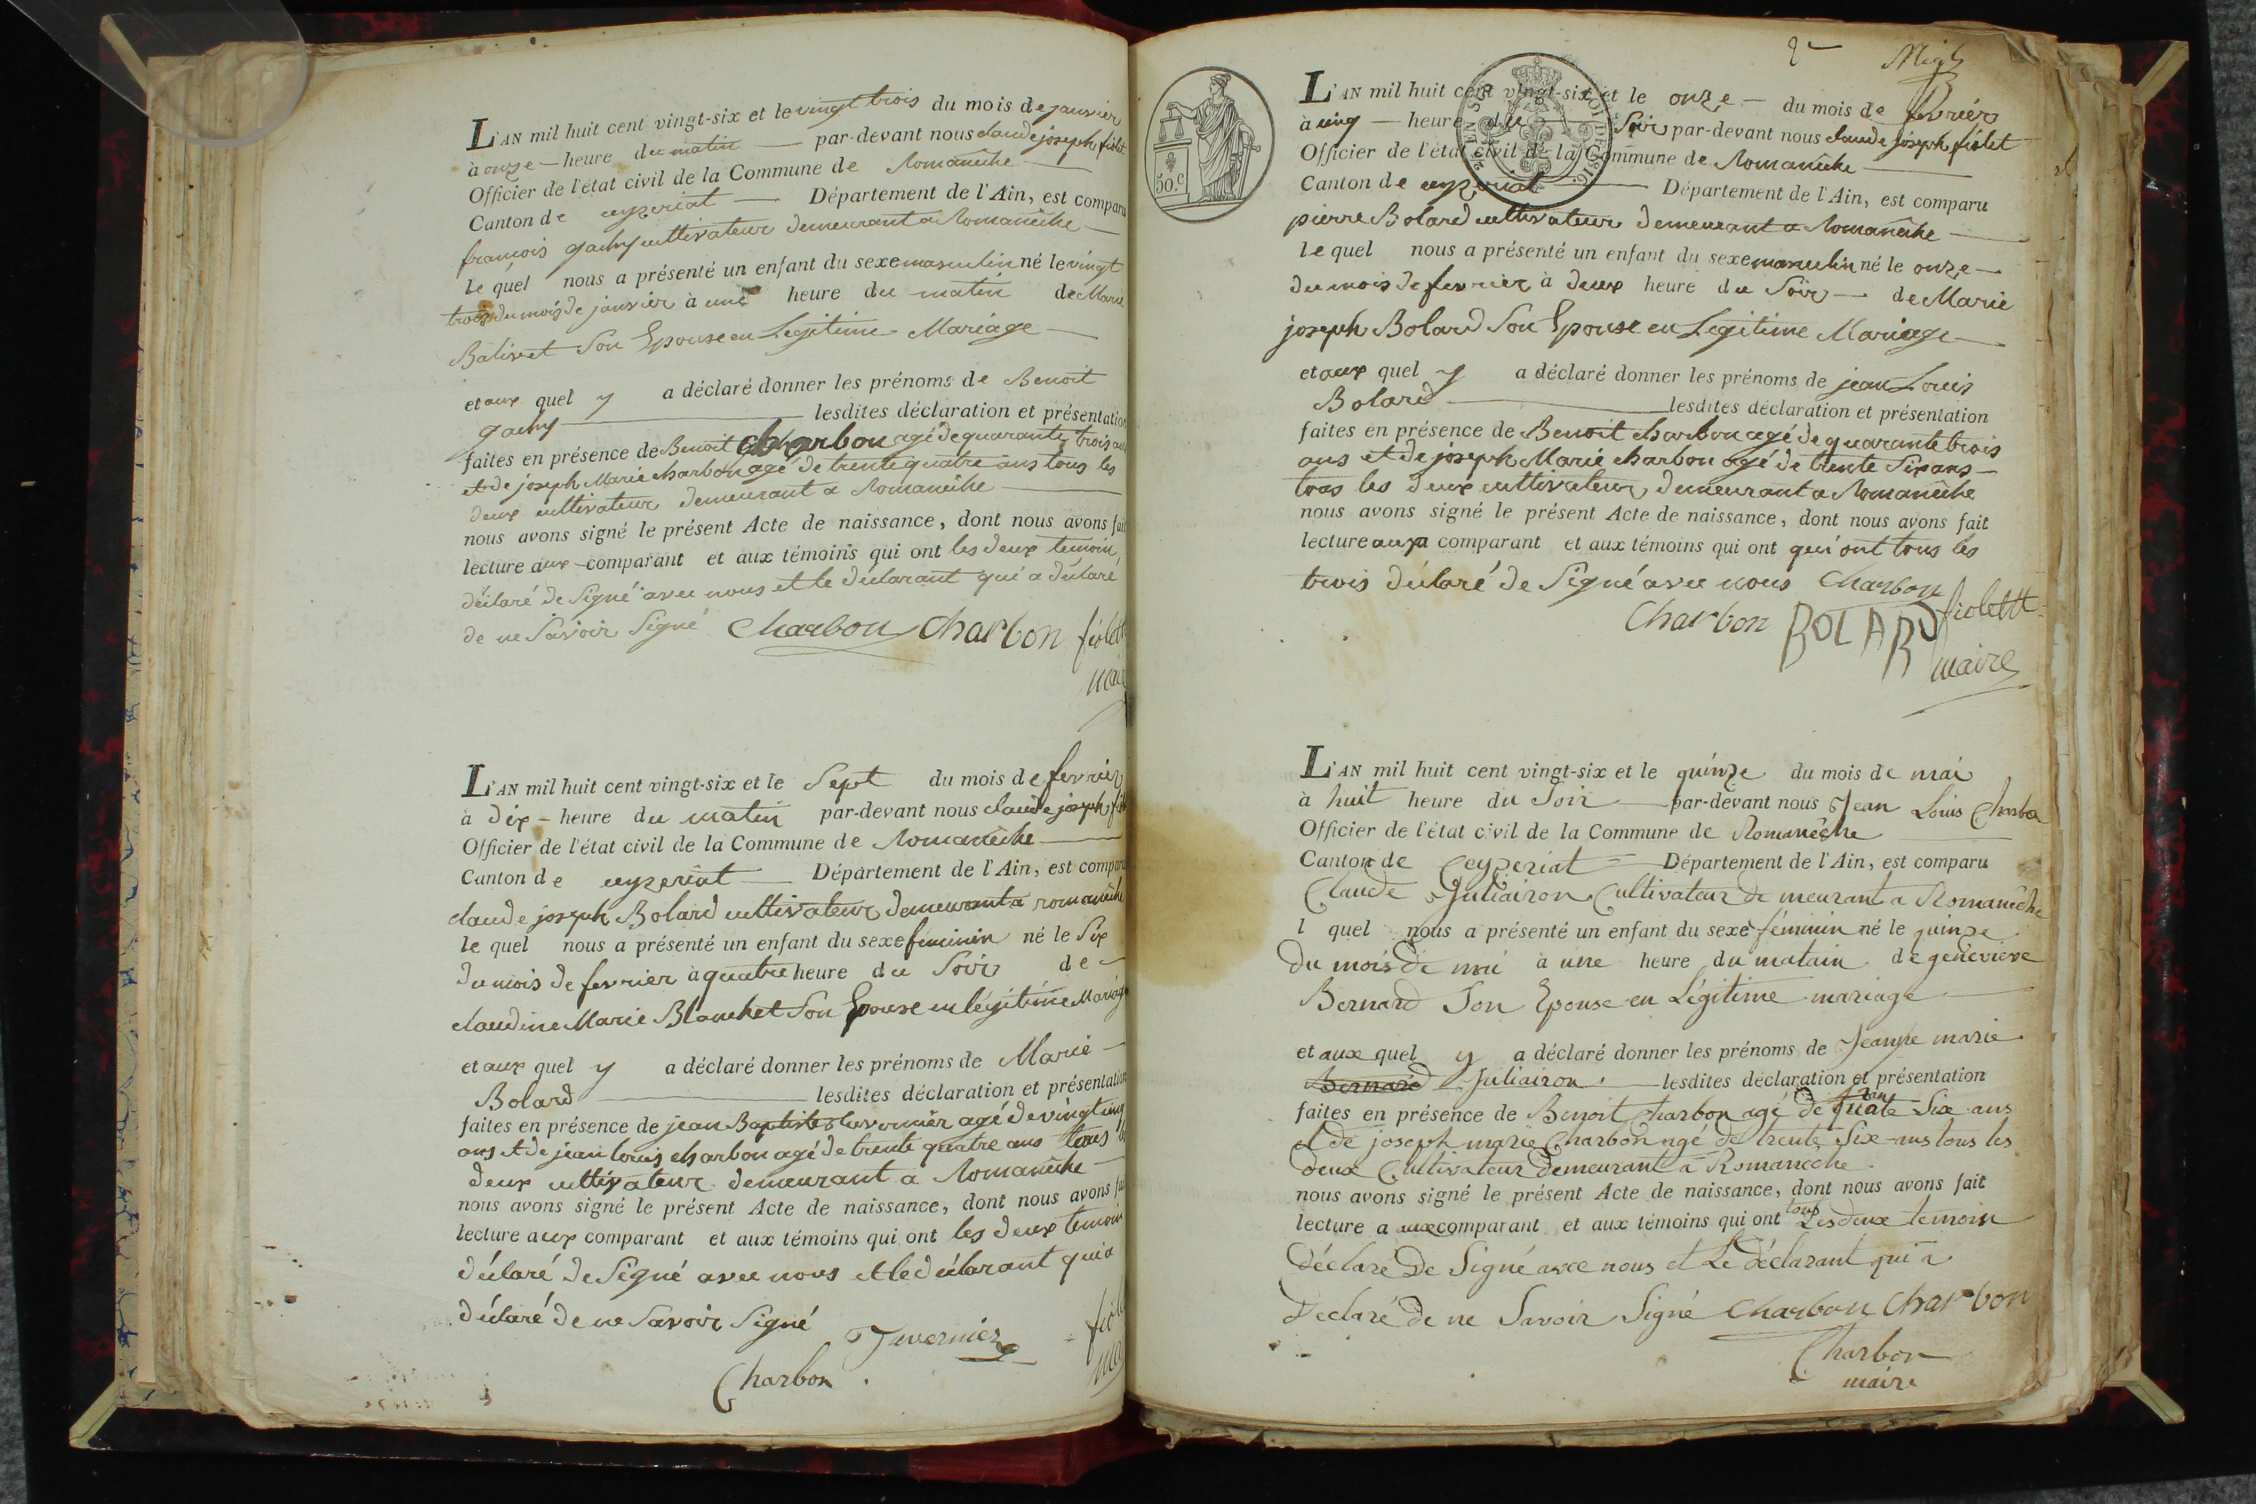 L'AN mil huit cent vingt-six et le vingt trois du mois de janvier
à onze — heure du matin — par-devant nous claude joseph fiolet
Officier de l'état civil de la Commune de Romanêche —
Canton de ceyzeriat — Département de l'Ain, est comparu
francois gachy cultivateur demeurant a Romanêche —
le quel nous a présenté un enfant du sexe masculin né le vingt
trois du mois de janvier à une heure du matin de Marie
Balivet Son Epouse en Legitime Mariage —
et aux quel y a déclaré donner les prénoms de Benoit
gachy — lesdites déclaration et présentation
faites en présence de Benoit charbon agé de quarante trois ans
et de joseph Marie charbon agé de trente quatre ans tous les
deux cultivateur demeurant a Romanêche —
nous avons signé le présent Acte de naissance, dont nous avons fait
lecture aux comparant et aux témoins qui ont les deux temoin
déclaré de Signé avec nous et le déclarant qui a déclaré
de ne Savoir Signé Charbon Charbon fiolett
maire
L'AN mil huit cent vingt-six et le Sept du mois de fevrier
à dix — heure du matin par-devant nous claude joseph
Officier de l'état civil de la Commune de Romanêche —
Canton de ceyzeriat — Département de l'Ain, est comparu
claude joseph Bolard cultivateur demeurant a romanêche
le quel nous a présenté un enfant du sexe feminin né le Six
du mois de fevrier à quatre heure du Soir de —
claudine Marie Blanchet Son Epouse en légitime Mariage
et aux quel y a déclaré donner les prénoms de Marie —
Bolard — lesdites déclaration et présentation
faites en présence de jean Baptiste tavernier agé de vingt cinq
ans et de jean louis charbon agé de trente quatre ans tous
deux cultivateur demeurant a Romanêche —
nous avons signé le présent Acte de naissance, dont nous avons fait
lecture aux comparant et aux témoins qui ont les deux temoin
déclaré de Signé avec nous et le déclarant qui a
déclaré de ne Savoir Signé
Charbon
50.c
2e
L'AN mil huit cent vingt-six et le onze — du mois de fevrier
à cinq — heure du Soir par-devant nous claude joseph fiolet
Officier de l'état civil de la Commune de Romanêche —
Canton de ceyzeriat — Département de l'Ain, est comparu
pierre Bolard cultivateur demeurant a Romanêche —
le quel nous a présenté un enfant du sexe masculin né le onze —
du mois de fevrier à deux heure du Soir — de Marie
joseph Bolard Son Epouse en Legitime Mariage —
et aux quel y a déclaré donner les prénoms de jean Louis
Bolard — lesdites déclaration et présentation
faites en présence de Benoit charbon agé de quarante trois
ans et de joseph Marie charbon agé de trente Six ans —
tous les deux cultivateur demeurant a Romanêche
nous avons signé le présent Acte de naissance, dont nous avons fait
lecture aux comparant et aux témoins qui ont qui ont tous les
trois déclaré de Signé avec nous Charbon
Charbon BOLARD fiolett
maire
L'AN mil huit cent vingt-six et le quinze du mois de mai
à huit heure du Soir — par-devant nous Jean Louis Charbon
Officier de l'état civil de la Commune de Romanêche —
Canton de Ceyzeriat — Département de l'Ain, est comparu
Claude Juliairon Cultivateur de meurant a Romanêche
l quel nous a présenté un enfant du sexe féminin né le quinze
du mois de mai à une heure du matain de genevieve
Bernard Son Epouse en Légitime mariage —
et aux quel y a déclaré donner les prénoms de Jeanne marie
Bernard Juliairon. — lesdites déclaration et présentation
faites en présence de Benoit Charbon agé de quarante Six ans
et de joseph marie Charbon agé de trente Six ans tous les
deux Cultivateur demeurant a Romanêche.
nous avons signé le présent Acte de naissance, dont nous avons fait
lecture a aux comparant et aux témoins qui ont tous Les deux temoin
Déclaré De Signé avec nous et Le Déclarant qui a
Déclaré de ne Savoir Signé Charbon Charbon
Charbon
maire